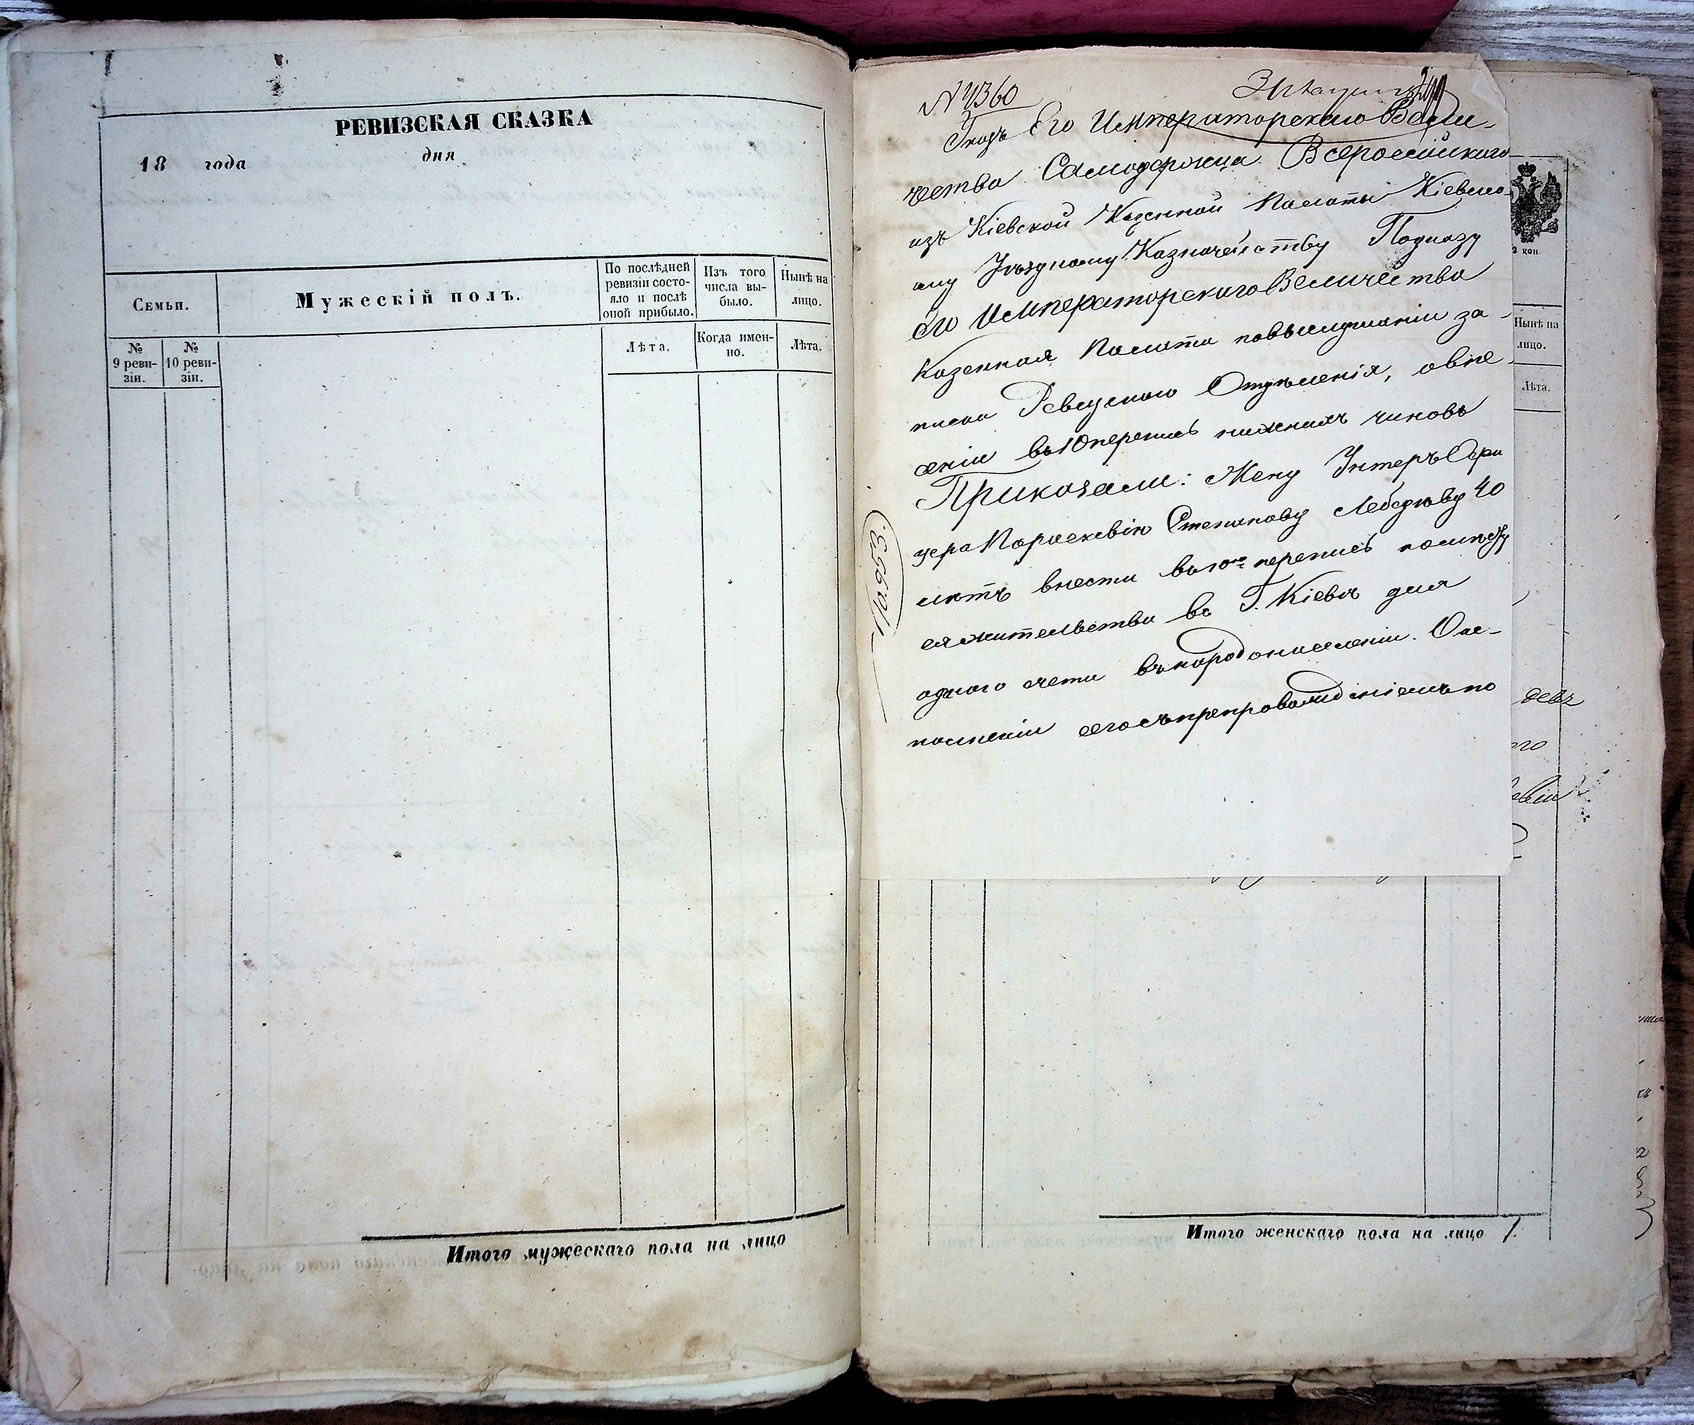 РЕВИЗСКАЯ СКАЗКА
18 года дня
Семьи.
Мужескій полъ.
По послѣдней ревизіи состояло и послѣ оной прибыло.
Изъ того числа выбыло.
Нынѣ на лицо.
№ 9 ревизіи.
№ 10 ревизіи.
Лѣта.
Когда именно.
Лѣта.
Итого мужескаго пола на лицо
№ 4360
Указъ Его Императорскаго Вели-
чества Самодержца Всероссійскаго
изъ Кіевской Казенной Палаты Кіевско
му Уѣздному Казначейству По указу
Его Императорскаго Величества
Казенная Палата по выслушаніи за-
писки Ревизскаго Отдѣленія, о вне
сеніи въ 10 перепись нижнихъ чиновъ
Приказали: Жену Унтеръ Офи
цера Параскевію Степанову Лебедеву 40
лѣтъ внести въ 10ю перепись по мѣсту
ея жительства въ Г. Кіевѣ для
однаго счета въ народонаселеніи. О ис-
полненіи сего съ препровожденіемъ по
2 коп.
Нынѣ на
лицо.
Лѣта.
Итого женскаго пола на лицо 1.